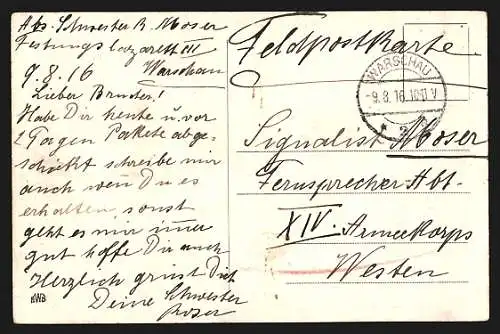 Abs. Schwester R. Moser
Festungslazarett III
Warschau
9.8.16
Lieber Bruder!
Habe Dir heute u. vor
2 Tagen Pakete abge-
schickt schreibe mir
auch wen Du es
erhalten, sonst
geht es mir imer
gut hoffe Dir auch
Herzlich grüst Dich
Deine Schwester
Feldpostkarte
WARSCHAU
-9.8.16.10-11V
Signalist Moser
Fernsprecher Abt.
XIV. Armeekorps
Westen